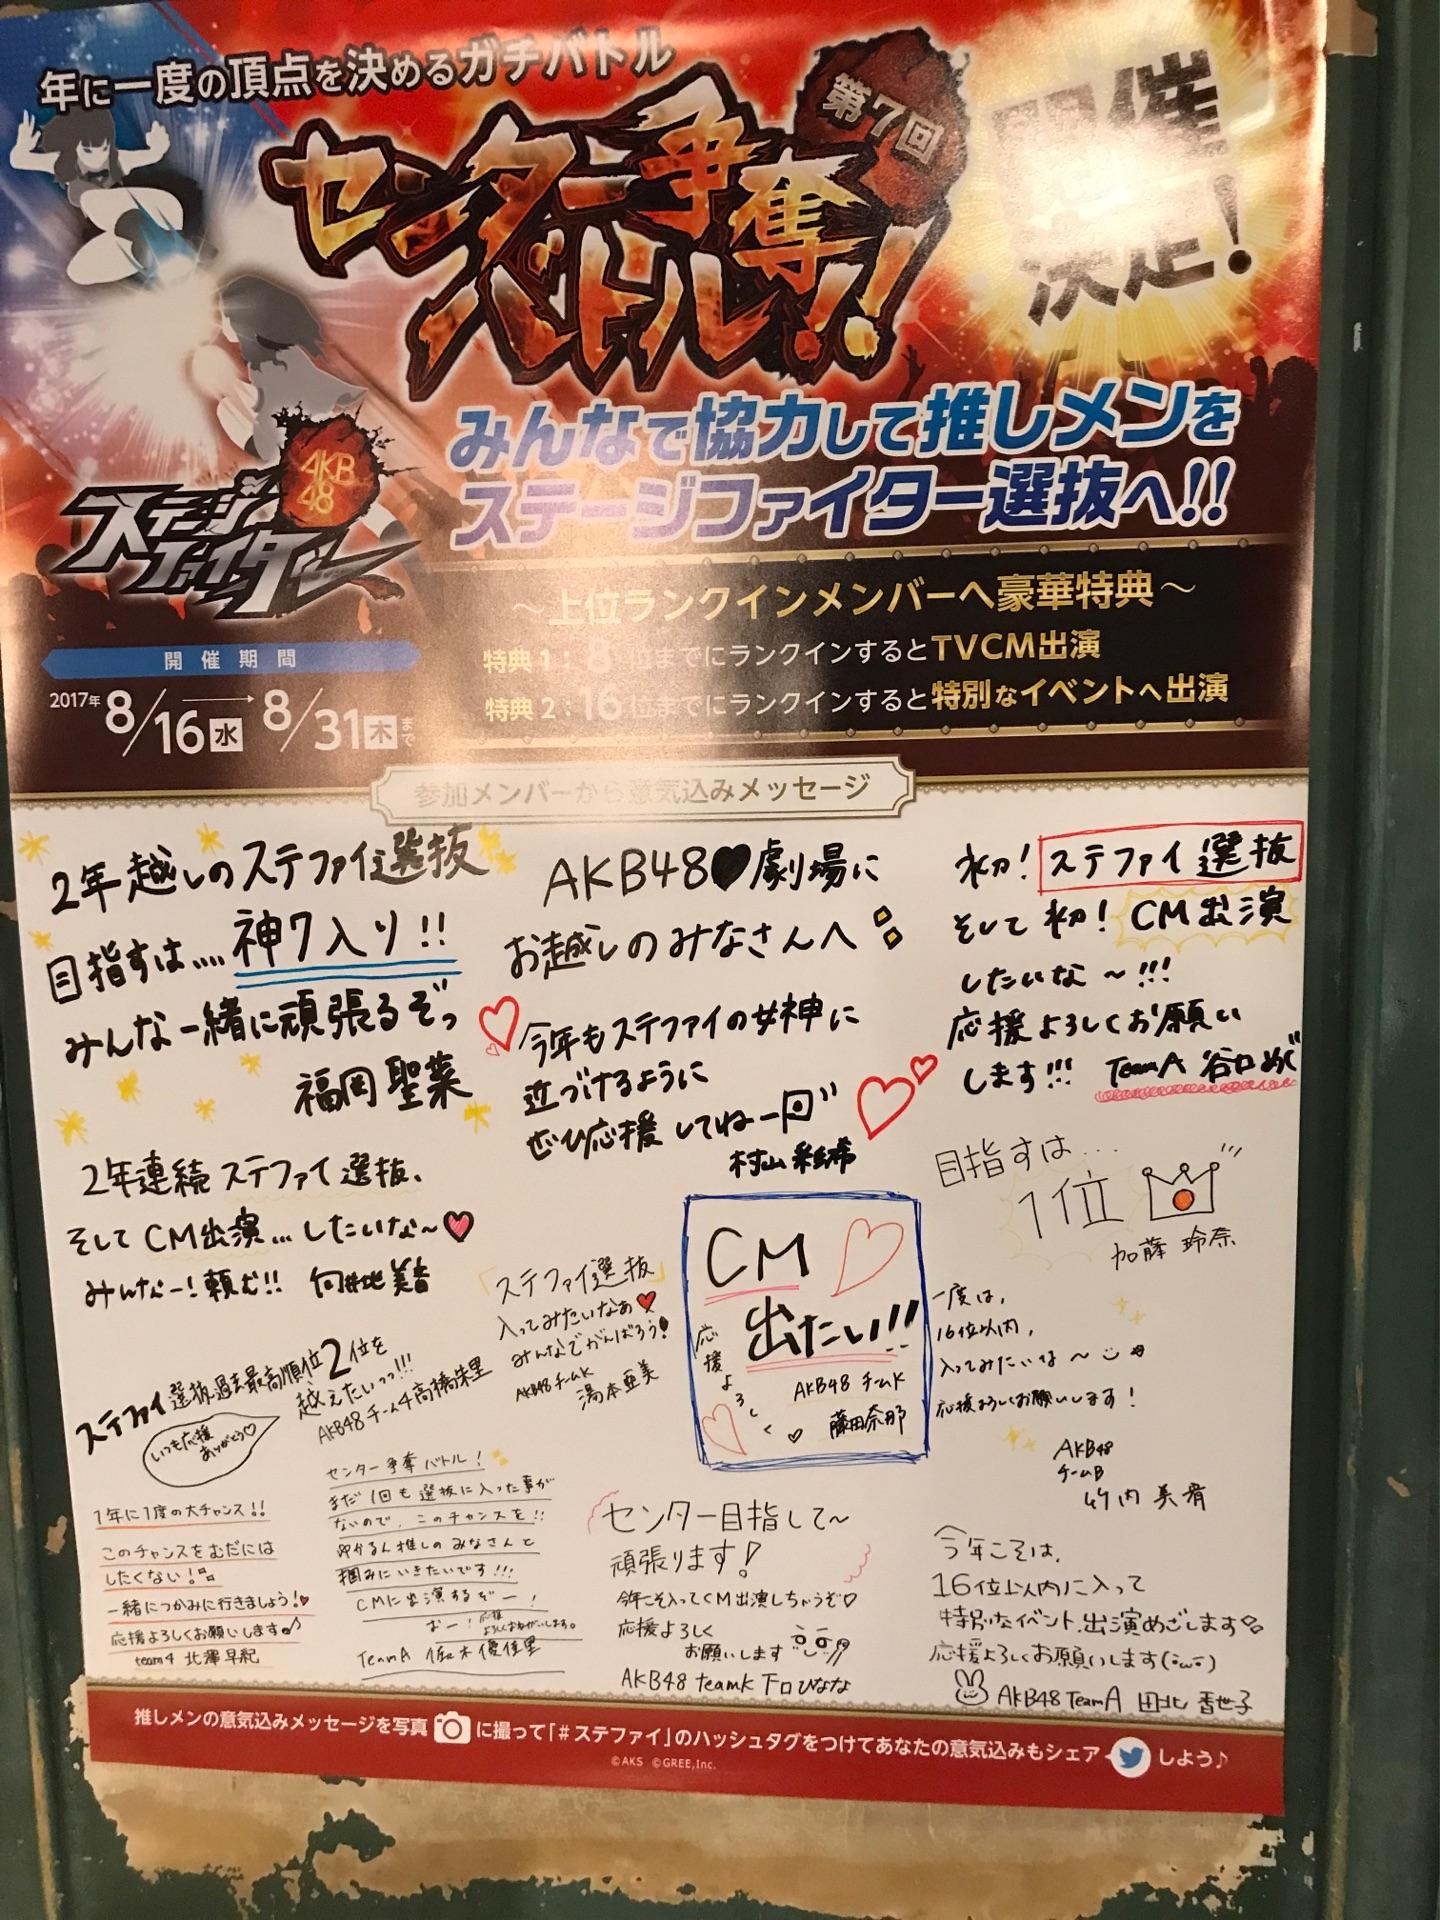 年に一度の頂点を決めるガチバトル
第7回
センター争奪
バトル!!
開催
決定!
AKB
48
ステージ
ファイター
みんなで協力して推しメンを
ステージファイター選抜へ!!
~上位ランクインメンバーへ豪華特典~
特典1:8位までにランクインするとTVCM出演
特典2:16位までにランクインすると特別なイベントへ出演
開催期間
2017年8/16水→8/31木まで
参加メンバーから意気込みメッセージ
2年越しのステファイ選抜
目指すは....神7入り!!
みんな一緒に頑張るぞっ
福岡聖菜
AKB48♥劇場に
お越しのみなさんへ
今年もステファイの女神に
近づけるように
ぜひ応援してねー
村山彩希
初!ステファイ選抜
そして初!CM出演
したいな~!!!
応援よろしくお願い
します!!! TeamA 谷口めぐ
2年連続ステファイ選抜、
そしてCM出演...したいな~♥
みんなー!頼む!! 向井地美音
目指すは...
1位
加藤玲奈
「ステファイ選抜」
入ってみたいなぁ♥
みんなでがんばろう!
AKB48チームK
湯本亜美
CM
出たい!!
応援よろしく♡
AKB48 チームK
藤田奈那
一度は、
16位以内、
入ってみたいな~
応援よろしくお願いします!
AKB48
チームB
竹内美宥
ステファイ選抜過去最高順位2位を
越えたいっっ!!!
AKB48チーム4高橋朱里
いつも応援
ありがとう♡
1年に1度の大チャンス!!
このチャンスをむだには
したくない!
一緒につかみに行きましょう!♥
応援よろしくお願いします♪
team4 北澤早紀
センター争奪バトル!
まだ1回も選抜に入った事が
ないので、このチャンスを!!
ゆかるん推しのみなさんと
掴みにいきたいです!!!
CMに出演するぞー!
おー!応援よろしくおねがいします。
TeamA 佐々木優佳里
センター目指して~
頑張ります!
今年こそ入ってCM出演しちゃうぞ♡
応援よろしく
お願いします
AKB48 teamK 下口ひなな
今年こそは、
16位以内に入って
特別なイベント出演めざします
応援よろしくお願いします(・ω・)
AKB48 TeamA 田北香世子
推しメンの意気込みメッセージを写真に撮って「#ステファイ」のハッシュタグをつけてあなたの意気込みもシェアしよう♪
©AKS ©GREE,Inc.